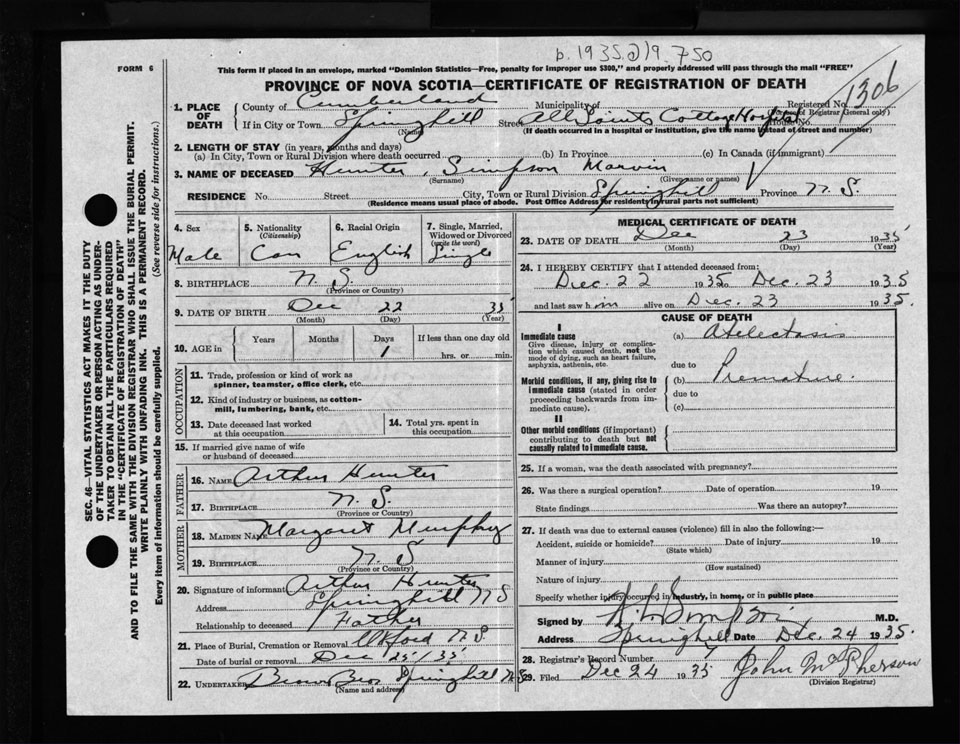 b. 1935 @ 19. 750
FORM 6
This form if placed in an envelope, marked "Dominion Statistics—Free, penalty for improper use $300," and properly addressed will pass through the mail "FREE"
PROVINCE OF NOVA SCOTIA—CERTIFICATE OF REGISTRATION OF DEATH
1306
SEC. 46—VITAL STATISTICS ACT MAKES IT THE DUTY
OF THE UNDERTAKER OR PERSON ACTING AS UNDER-
TAKER TO OBTAIN ALL THE PARTICULARS REQUIRED
IN THE "CERTIFICATE OF REGISTRATION OF DEATH"
AND TO FILE THE SAME WITH THE DIVISION REGISTRAR WHO SHALL ISSUE THE BURIAL PERMIT.
WRITE PLAINLY WITH UNFADING INK. THIS IS A PERMANENT RECORD.
Every item of information should be carefully supplied. (See reverse side for instructions.)
1. PLACE OF DEATH
County of Cumberland Municipality of Registered No.
(For use of Registrar General only)
If in City or Town Springhill Street All Saints Cottage Hospital House No.
(Name) (If death occurred in a hospital or institution, give the name instead of street and number)
2. LENGTH OF STAY (in years, months and days)
(a) In City, Town or Rural Division where death occurred (b) In Province (c) In Canada (if immigrant)
3. NAME OF DECEASED Hunter, Simpson Marvin
(Surname) (Given name or names)
RESIDENCE No. Street City, Town or Rural Division Springhill Province N.S.
(Residence means usual place of abode. Post Office Address for residents in rural parts not sufficient)
4. Sex
Male
5. Nationality
(Citizenship)
Can
6. Racial Origin
English
7. Single, Married,
Widowed or Divorced
(write the word)
Single
8. BIRTHPLACE N.S.
(Province or Country)
9. DATE OF BIRTH Dec 22 35
(Month) (Day) (Year)
10. AGE in
Years Months Days If less than one day old
1 hrs. or min.
OCCUPATION
11. Trade, profession or kind of work as
spinner, teamster, office clerk, etc.
12. Kind of industry or business, as cotton-
mill, lumbering, bank, etc.
13. Date deceased last worked
at this occupation
14. Total yrs. spent in
this occupation
15. If married give name of wife
or husband of deceased
FATHER
16. NAME Arthur Hunter
17. BIRTHPLACE N.S.
(Province or Country)
MOTHER
18. MAIDEN NAME Margaret Murphy
19. BIRTHPLACE N.S
(Province or Country)
20. Signature of informant Arthur Hunter
Address Springhill N S
Relationship to deceased Father
21. Place of Burial, Cremation or Removal Oxford N.S.
Date of burial or removal Dec 25/35
22. UNDERTAKER Brown Bros Springhill N S
(Name and address)
MEDICAL CERTIFICATE OF DEATH
23. DATE OF DEATH Dec 23 1935
(Month) (Day) (Year)
24. I HEREBY CERTIFY that I attended deceased from:
Dec. 22 1935 to Dec. 23 1935
and last saw h im alive on Dec. 23 1935.
CAUSE OF DEATH
I
Immediate cause
Give disease, injury or complica-
tion which caused death, not the
mode of dying, such as heart failure,
asphyxia, asthenia, etc.
(a) Atelectasis
due to
Morbid conditions, if any, giving rise to
immediate cause (stated in order
proceeding backwards from im-
mediate cause).
(b) Premature.
due to
(c)
II
Other morbid conditions (if important)
contributing to death but not
causally related to immediate cause.
25. If a woman, was the death associated with pregnancy?
26. Was there a surgical operation? Date of operation 19
State findings Was there an autopsy?
27. If death was due to external causes (violence) fill in also the following:—
Accident, suicide or homicide? Date of injury 19
(State which)
Manner of injury
(How sustained)
Nature of injury
Specify whether injury occurred in industry, in home, or in public place
Signed by M.D.
Address Springhill Date Dec. 24 1935.
28. Registrar's Record Number
29. Filed Dec 24 1935 John McPherson
(Division Registrar)